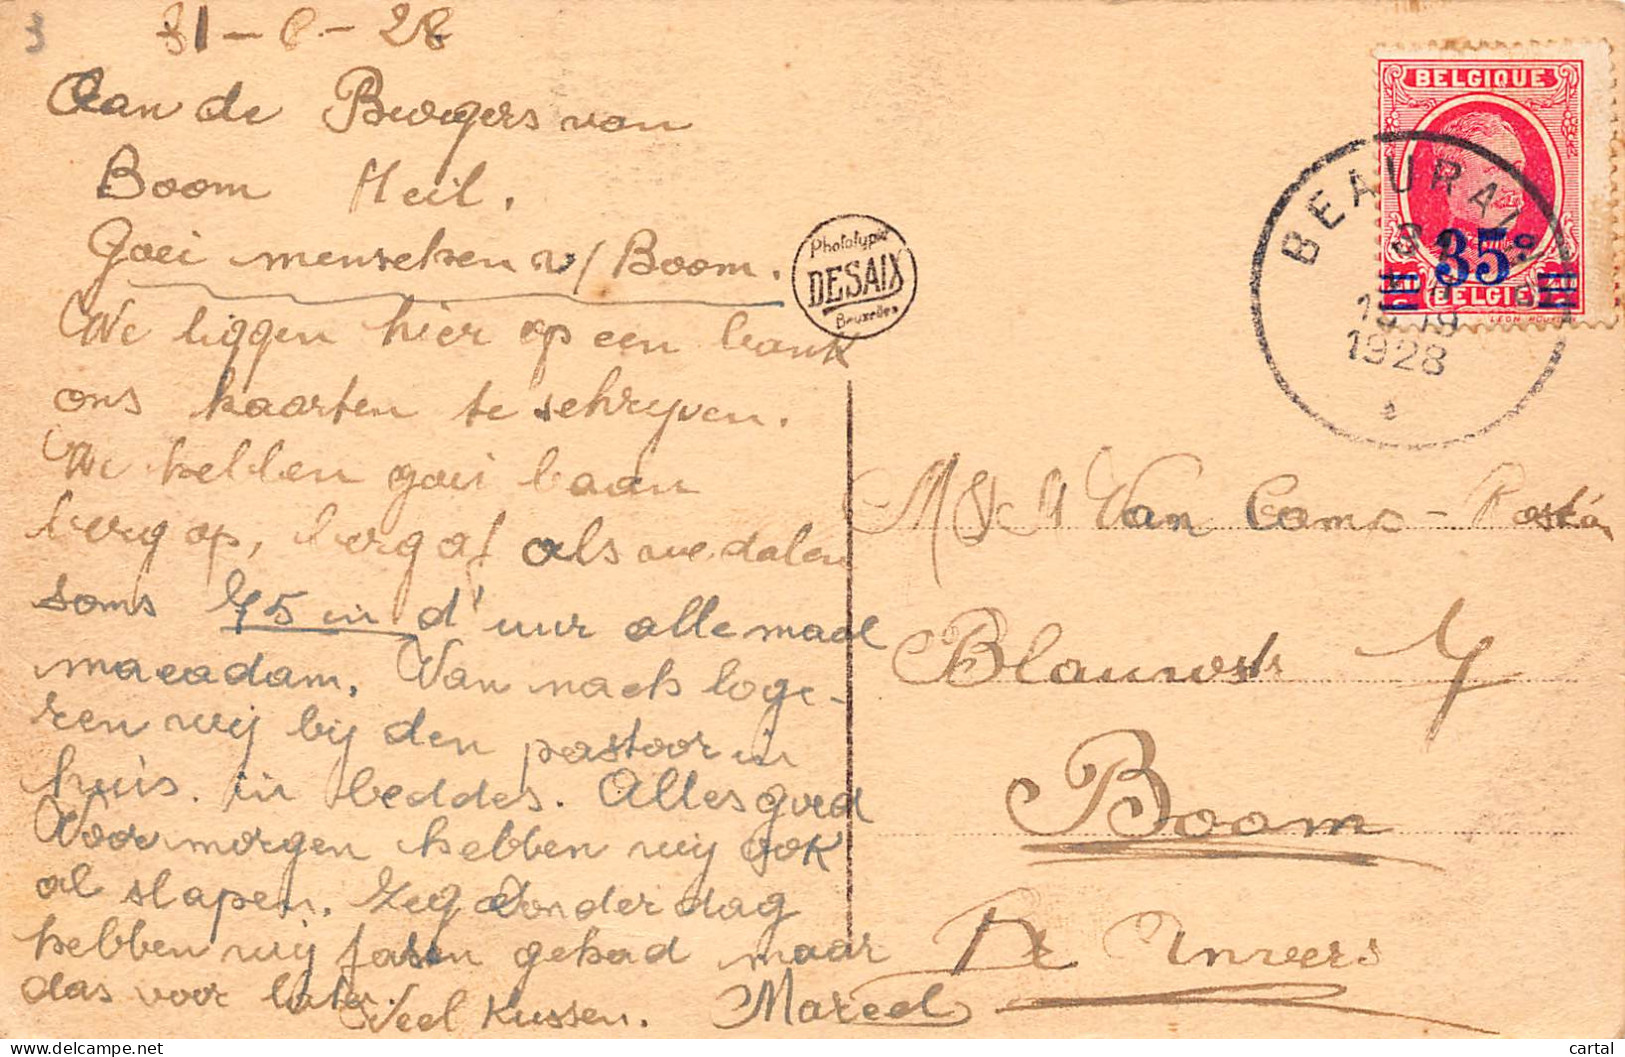 3
31-8-28
Aan de Burgers van
Boom Heil.
Goei menschen v/ Boom.
We liggen hier op een bank
ons kaarten te schrijven.
We hebben goei baan
berg op, berg af als we dalen
soms 75 in d'uur allemaal
macadam. Van nach loge-
ren wij bij den pastoor in
huis. in beddes. Alles goed
Voor morgen hebben wij ook
al slapen. Zeg donderdag
hebben wij fasen gehad maar
das voor later.
Veel Kussen. Marcel
Phototypie
DESAIX
Bruxelles
BELGIQUE
35c
BELGIE
BEAURAING
1928
M & M Van Camp -
Blauwstr 7
Boom
Pr Anvers
© cartal
delcampe.net